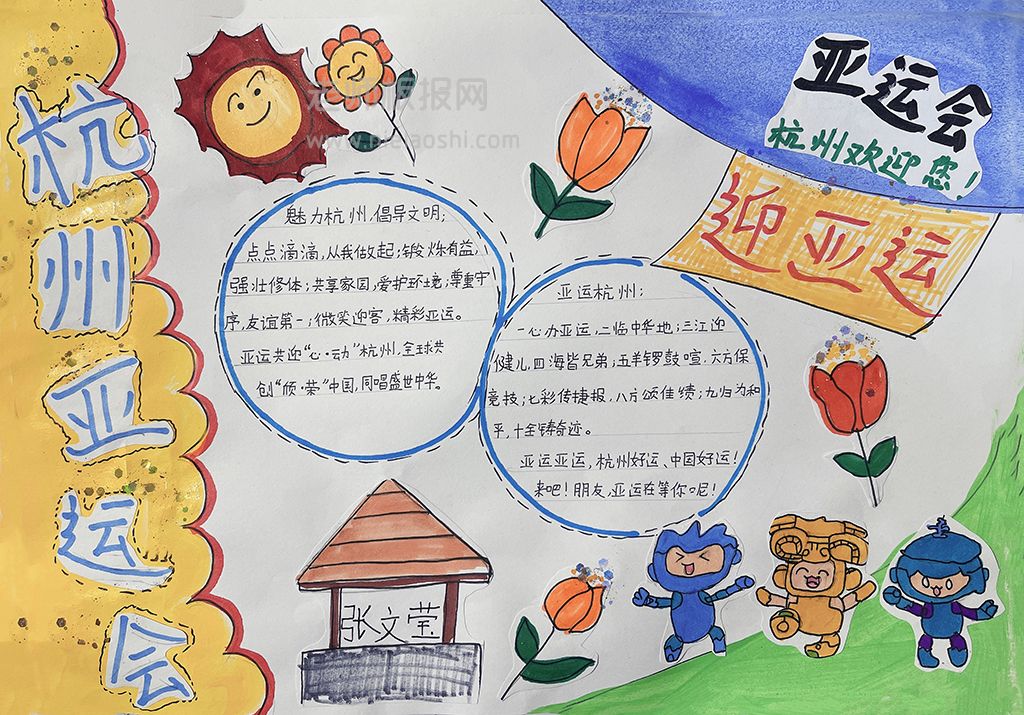 杭州亚运会
亚运会
杭州欢迎您!
迎亚运
魅力杭州,倡导文明;
点点滴滴,从我做起;锻炼有益,
强壮修体;共享家园,爱护环境;尊重守
序,友谊第一;微笑迎客,精彩亚运。
亚运共迎“心·动”杭州,全球共
创“颀·荣”中国,同唱盛世中华。
亚运杭州;
一心办亚运,二临中华地;三江迎
健儿,四海皆兄弟;五羊锣鼓喧.六方保
竞技;七彩传捷报,八方颂佳绩;九归为和
平,十全铸奇迹。
亚运亚运,杭州好运、中国好运!
来吧!朋友,亚运在等你呢!
张文莹